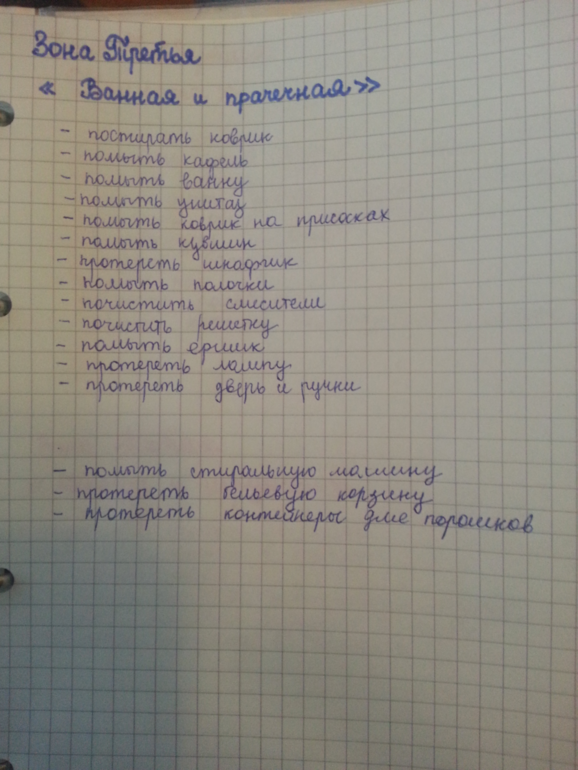 Зона Третья
« Ванная и прачечная»
- постирать коврик
- помыть кафель
- помыть ванну
- помыть унитаз
- помыть коврик на присосках
- помыть кувшин
- протереть шкафчик
- помыть полочки
- почистить смесители
- почистить решетку
- помыть ершик
- протереть лампу
- протереть дверь и ручки
- помыть стиральную машину
- протереть бельевую корзину
- протереть контейнеры для порошков